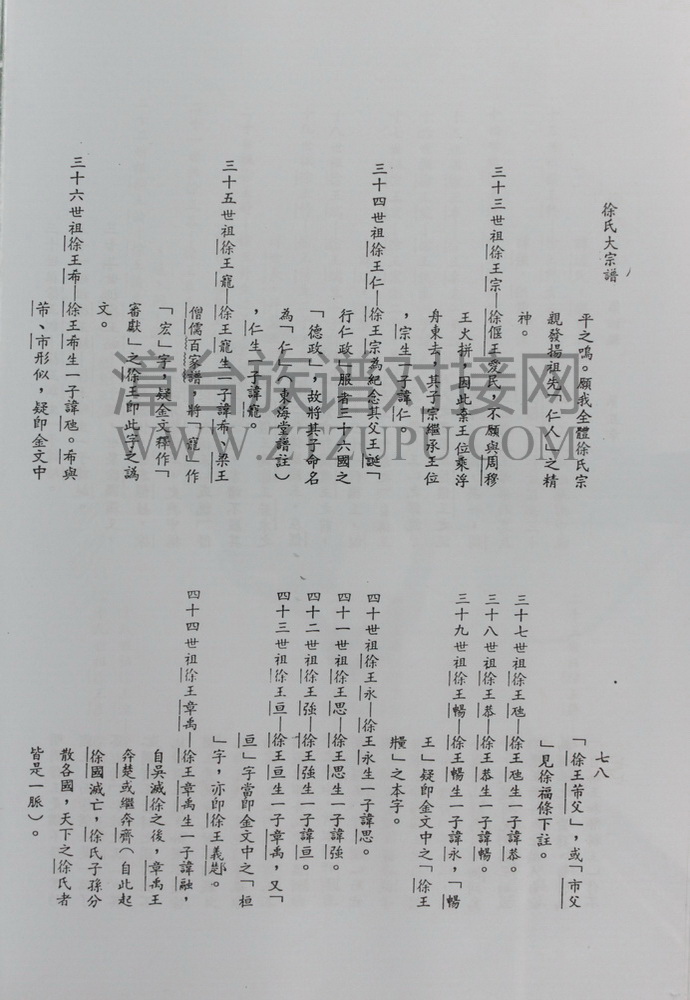 徐氏大宗譜
平之鳴。願我全體徐氏宗
親發揚祖先「仁人」之精
神。
三十三世祖徐王宗—徐偃王愛民，不願與周穆
王火拼，因此棄王位乘浮
舟東去，其子宗繼承王位
，宗生一子諱仁。
三十四世祖徐王仁—徐王宗為紀念其父王誕「
行仁政」服省三十六國之
「德政」，故將其子命名
為「仁」（東海堂譜註）
，仁生一子諱寵。
三十五世祖徐王寵—徐王寵生一子諱希，梁王
僧儒百家譜，將「寵」作
「宏」字，疑金文釋作「
審獻」之徐王即此字之譌
文。
三十六世祖徐王希—徐王希生一子諱虺。希與
芾、巿形似，疑即金文中
七八
「徐王芾父」，或「巿父
」見徐福條下註。
三十七世祖徐王虺—徐王虺生一子諱恭。
三十八世祖徐王恭—徐王恭生一子諱暢。
三十九世祖徐王暢—徐王暢生一子諱永，「暢
王」疑即金文中之「徐王
糧」之本字。
四十世祖徐王永—徐王永生一子諱思。
四十一世祖徐王思—徐王思生一子諱強。
四十二世祖徐王強—徐王強生一子諱亘。
四十三世祖徐王亘—徐王亘生一子章禹，又「
亘」字當即金文中之「桓
」字，亦即徐王義楚。
四十四世祖徐王章禹—徐王章禹生一子諱融，
自吳滅徐之後，章禹王
奔楚或繼奔齊（自此起
徐國滅亡，徐氏子孫分
散各國，天下之徐氏者
皆是一脈）。
漳台族谱对接网
WWW.ZTZUPU.COM